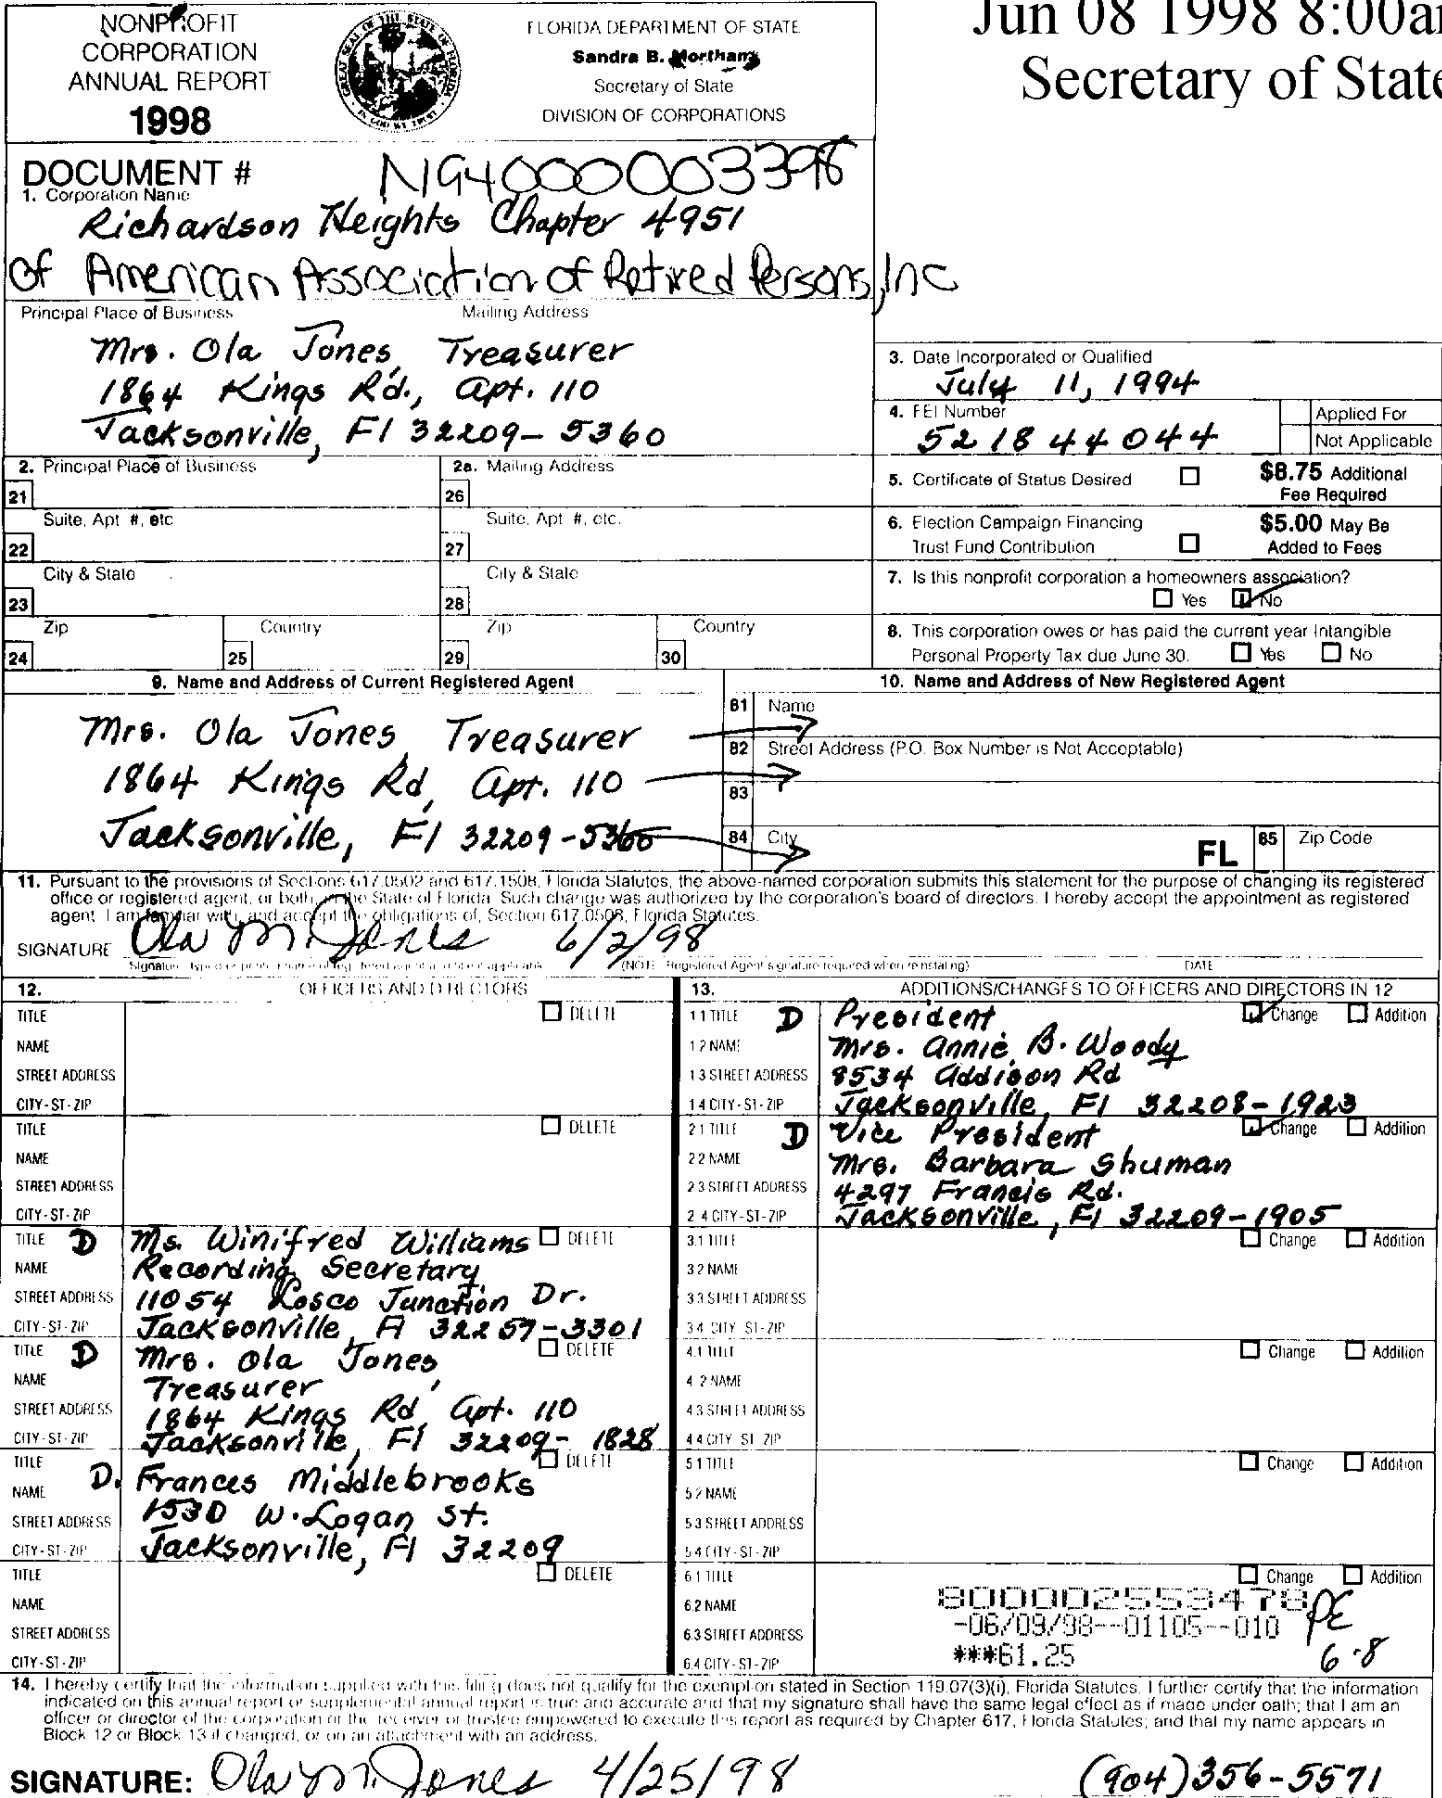 NONPROFIT
CORPORATION
ANNUAL REPORT
1998
FLORIDA DEPARTMENT OF STATE
Sandra B. Mortham
Secretary of State
DIVISION OF CORPORATIONS
Jun 08 1998 8:00a
Secretary of State
DOCUMENT # N94000003398
1. Corporation Name
Richardson Heights Chapter 4951
of American Association of Retired Persons, Inc
Principal Place of Business Mailing Address
Mrs. Ola Jones, Treasurer
1864 Kings Rd., Apt. 110
Jacksonville, Fl 32209-5360
3. Date Incorporated or Qualified
July 11, 1994
4. FEI Number
521844044
Applied For
Not Applicable
2. Principal Place of Business 2a. Mailing Address
21 26
Suite, Apt #, etc Suite, Apt #, etc.
22 27
City & State City & State
23 28
Zip Country Zip Country
24 25 29 30
5. Certificate of Status Desired $8.75 Additional
Fee Required
6. Election Campaign Financing $5.00 May Be
Trust Fund Contribution Added to Fees
7. Is this nonprofit corporation a homeowners association?
Yes No
8. This corporation owes or has paid the current year Intangible
Personal Property Tax due June 30. Yes No
9. Name and Address of Current Registered Agent
Mrs. Ola Jones, Treasurer
1864 Kings Rd, Apt. 110
Jacksonville, Fl 32209-5360
10. Name and Address of New Registered Agent
81 Name
82 Street Address (P.O. Box Number is Not Acceptable)
83
84 City FL 85 Zip Code
11. Pursuant to the provisions of Sections 617.0502 and 617.1508, Florida Statutes, the above-named corporation submits this statement for the purpose of changing its registered
office or registered agent, or both, in the State of Florida. Such change was authorized by the corporation's board of directors. I hereby accept the appointment as registered
agent. I am familiar with, and accept the obligations of, Section 617.0508, Florida Statutes.
SIGNATURE Ola M. Jones 6/2/98
(NOTE Registered Agent signature required when reinstating) DATE
12. OFFICERS AND DIRECTORS
TITLE DELETE
NAME
STREET ADDRESS
CITY-ST-ZIP
TITLE DELETE
NAME
STREET ADDRESS
CITY-ST-ZIP
TITLE D Ms. Winifred Williams DELETE
NAME Recording Secretary
STREET ADDRESS 11054 Losco Junction Dr.
CITY-ST-ZIP Jacksonville, Fl 32257-3301
TITLE D Mrs. Ola Jones, DELETE
NAME Treasurer
STREET ADDRESS 1864 Kings Rd, Apt. 110
CITY-ST-ZIP Jacksonville, Fl 32209-1828
TITLE DELETE
NAME D. Frances Middlebrooks
STREET ADDRESS 1530 W. Logan St.
CITY-ST-ZIP Jacksonville, Fl 32209
TITLE DELETE
NAME
STREET ADDRESS
CITY-ST-ZIP
13. ADDITIONS/CHANGES TO OFFICERS AND DIRECTORS IN 12
1.1 TITLE D President Change Addition
1.2 NAME Mrs. Annie B. Woody
1.3 STREET ADDRESS 8534 Addison Rd
1.4 CITY-ST-ZIP Jacksonville, Fl 32208-1923
2.1 TITLE D Vice President Change Addition
2.2 NAME Mrs. Barbara Shuman
2.3 STREET ADDRESS 4297 Francis Rd.
2.4 CITY-ST-ZIP Jacksonville, Fl 32209-1905
3.1 TITLE Change Addition
3.2 NAME
3.3 STREET ADDRESS
3.4 CITY-ST-ZIP
4.1 TITLE Change Addition
4.2 NAME
4.3 STREET ADDRESS
4.4 CITY-ST-ZIP
5.1 TITLE Change Addition
5.2 NAME
5.3 STREET ADDRESS
5.4 CITY-ST-ZIP
6.1 TITLE Change Addition
6.2 NAME 800002553478
6.3 STREET ADDRESS -06/09/98--01105--010
6.4 CITY-ST-ZIP ***61.25
PE
6-8
14. I hereby certify that the information supplied with this filing does not qualify for the exemption stated in Section 119.07(3)(i), Florida Statutes. I further certify that the information
indicated on this annual report or supplemental annual report is true and accurate and that my signature shall have the same legal effect as if made under oath; that I am an
officer or director of the corporation or the receiver or trustee empowered to execute this report as required by Chapter 617, Florida Statutes; and that my name appears in
Block 12 or Block 13 if changed, or on an attachment with an address.
SIGNATURE: Ola M. Jones 4/25/98 (904)356-5571